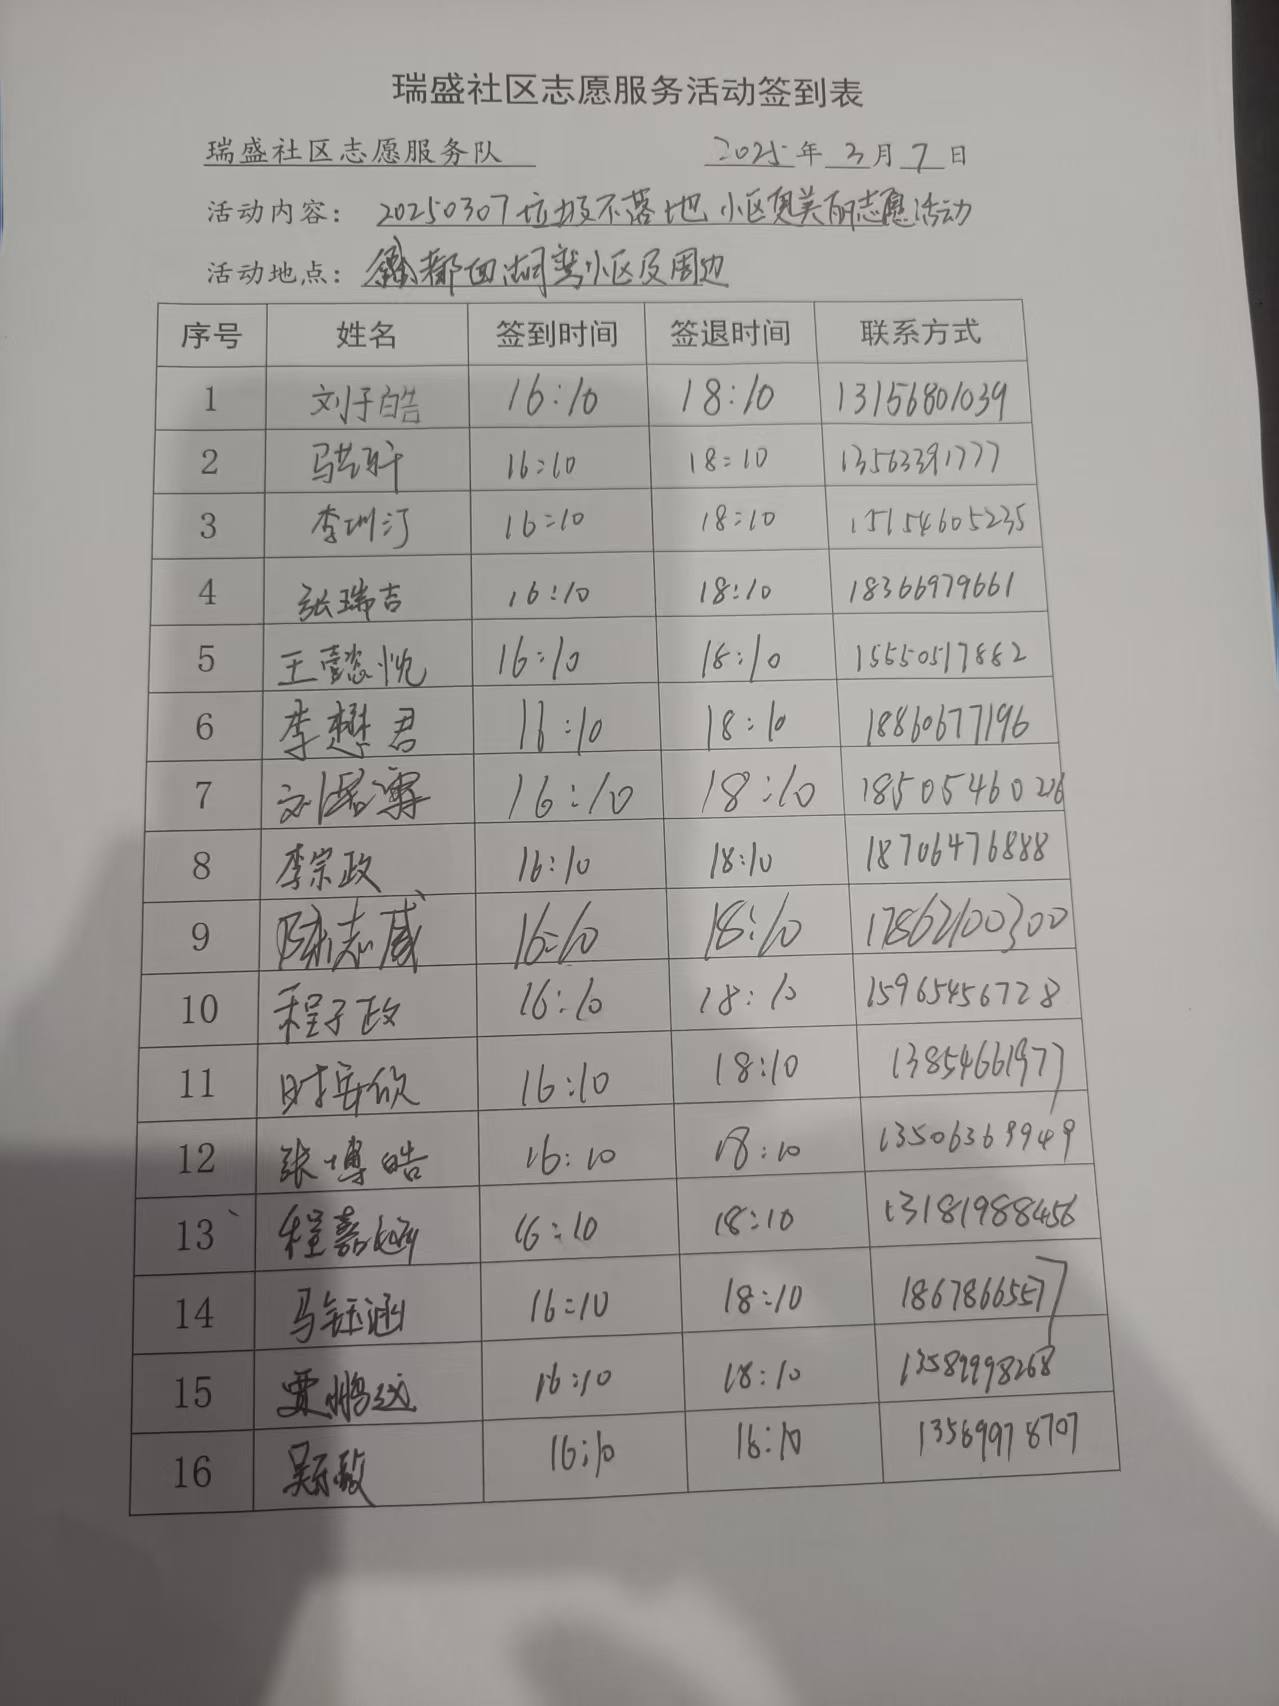 瑞盛社区志愿服务活动签到表
瑞盛社区志愿服务队 2025年3月7日
活动内容: 20250307垃圾不落地 小区更美丽志愿活动
活动地点: 鑫都西湖湾小区及周边
序号 姓名 签到时间 签退时间 联系方式
1 刘子皓 16:10 18:10 13156801039
2 16:10 18:10 13563391777
3 16:10 18:10 15154605235
4 张瑞吉 16:10 18:10 18366979661
5 王懿忱 16:10 18:10 15550517882
6 李懋君 16:10 18:10 18860677196
7 16:10 18:10 18505460226
8 李宗政 16:10 18:10 18706476888
9 陈志威 16:10 18:10 17862100300
10 程子政 16:10 18:10 15965456728
11 时安欣 16:10 18:10 13854661977
12 张博皓 16:10 18:10 13506369949
13 程嘉涵 16:10 18:10 13181988456
14 马钰涵 16:10 18:10 18678665577
15 贾鹏远 16:10 18:10 13589998268
16 16:10 16:10 13569978707